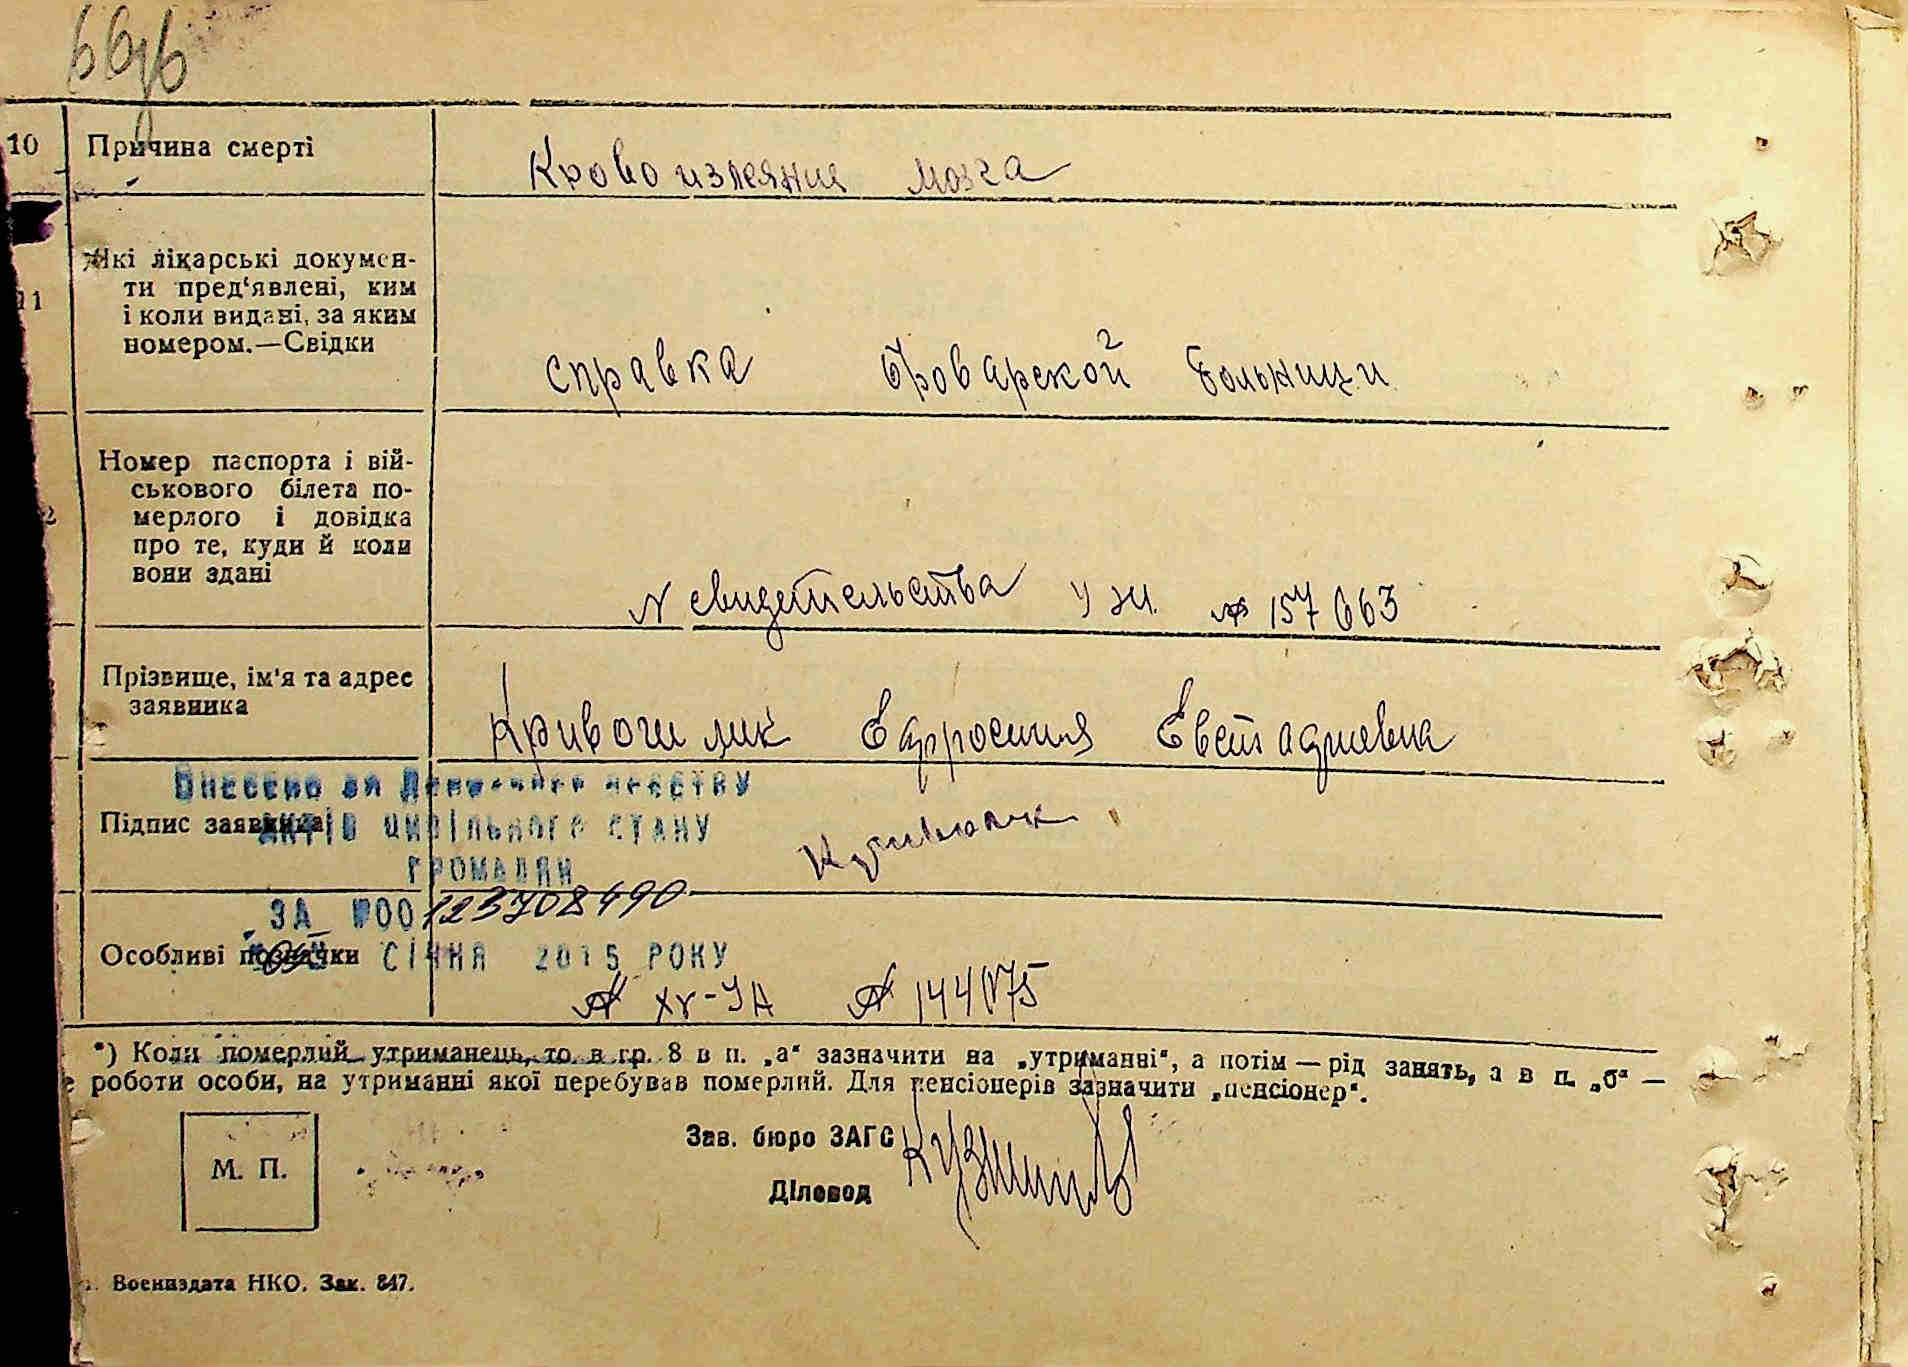 10 Причина смерті Кровоизлеяния мозга
11 Які лікарські докумен-
ти пред‘явлені, ким
і коли видані, за яким
номером.—Свідки
справка Броварской больници
Номер паспорта і вій-
ськового білета по-
мерлого і довідка
про те, куди й коли
вони здані
N свидетельства № 157663
Прізвище, ім'я та адрес
заявника
Евстафиевна
Внесено до Державного реєстру
Підпис заявника
актів цивільного стану
громадян
ЗА №00123708490
Особливі позначки
СІЧНЯ 2015 РОКУ
№ 144075
*) Коли померлий утриманець, то в гр. 8 в п. „а“ зазначити на „утриманні“, а потім — рід занять, а в п. „б“ —
роботи особи, на утриманні якої перебував померлий. Для пенсіонерів зазначити „пенсіонер“.
Зав. бюро ЗАГС
М. П.
Діловод
Воениздата НКО. Зак. 847.